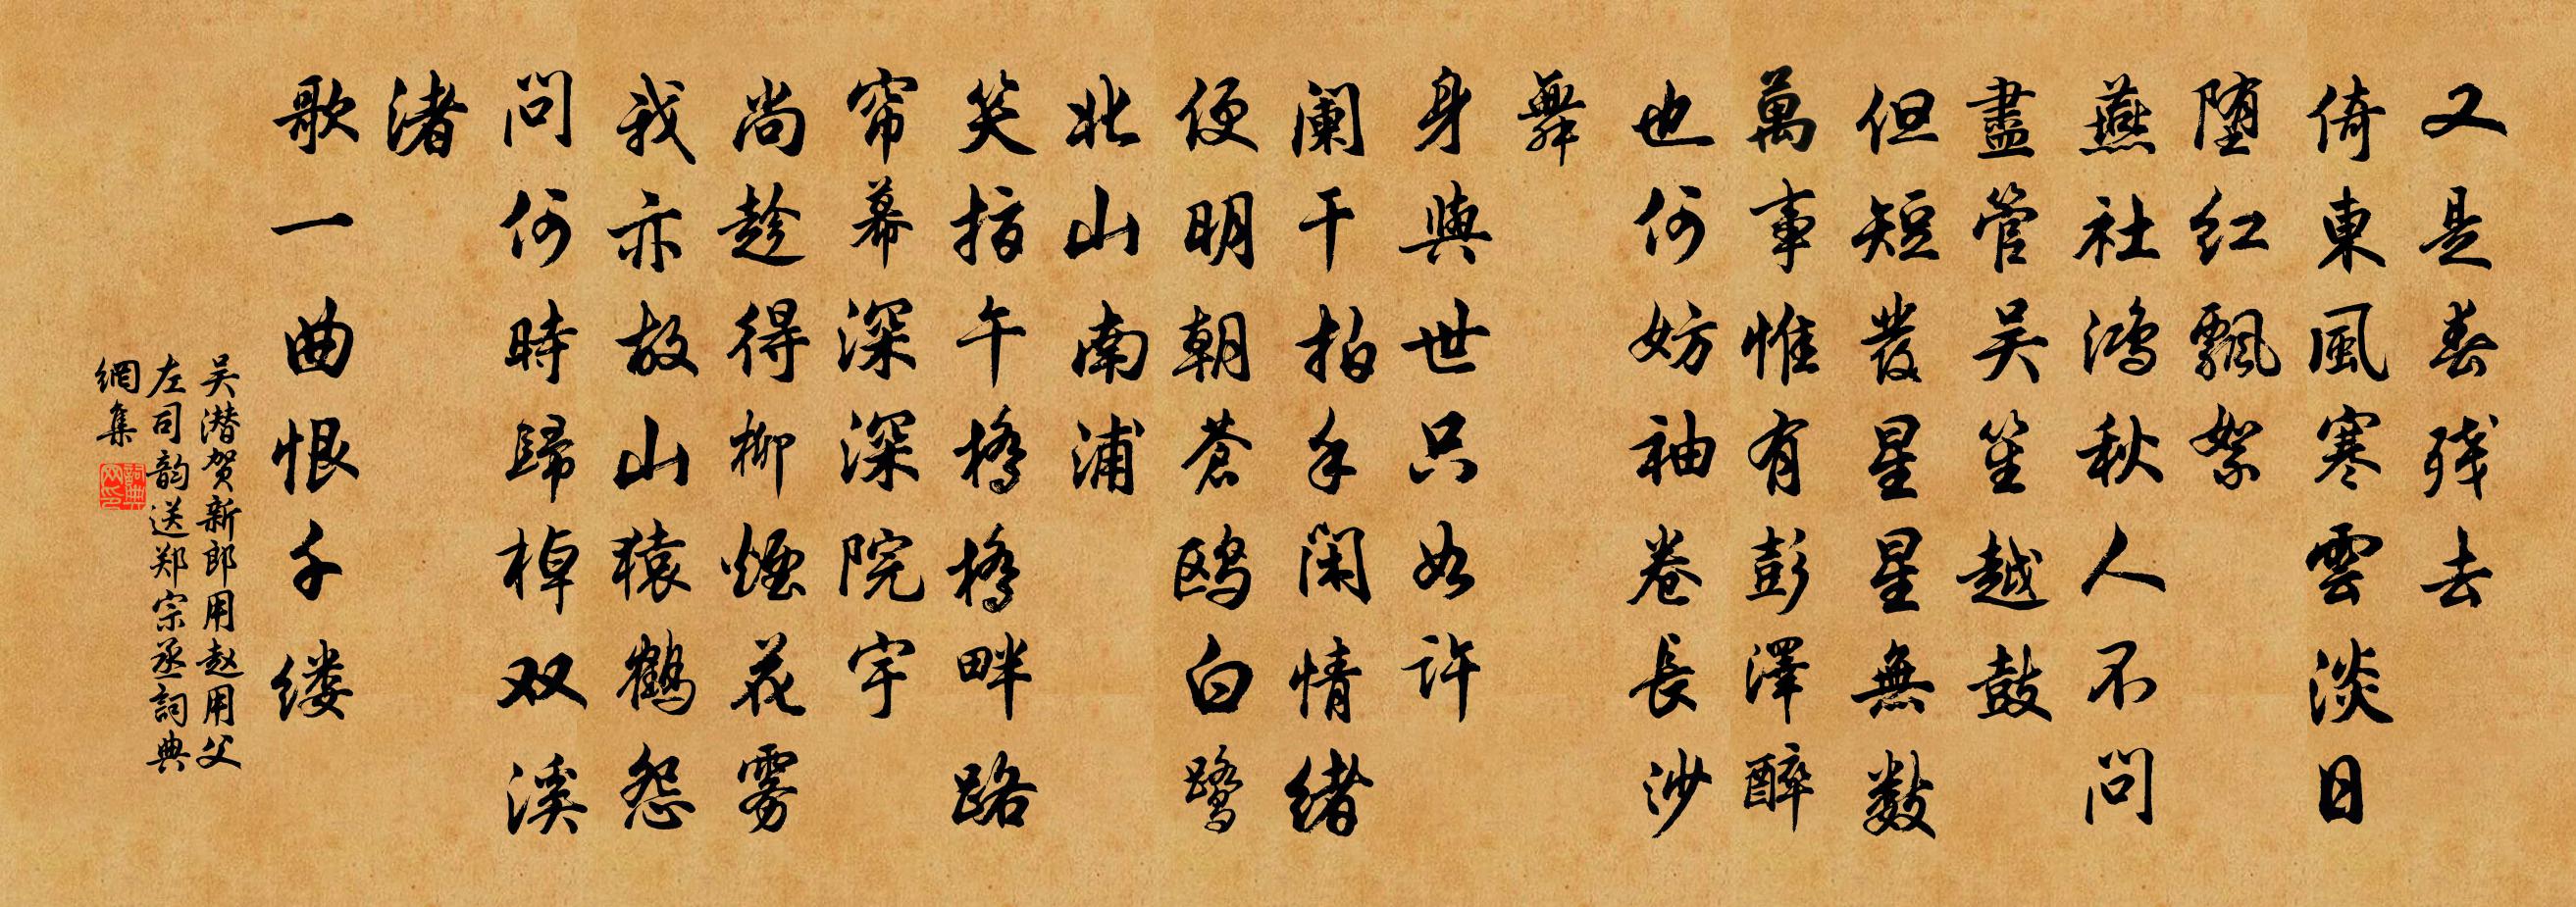 又是春残去
倚東風寒雲淡日
堕红飄絮
燕社鸿秋人不問
盡管吴笙越鼓
但短发星星無数
萬事惟有彭澤醉
也何妨袖卷長沙
舞
身與世只如许
阑干拍手闲情绪
便明朝蒼鸥白鹭
北山南浦
笑指午橋橋畔路
帘幕深深院宇
尚趁得柳煙花雾
我亦故山猿鶴怨
問何時歸棹双溪
渚
歌一曲恨千缕
吴潜贺新郎用赵用父
左司韵送郑宗丞詞典
網集